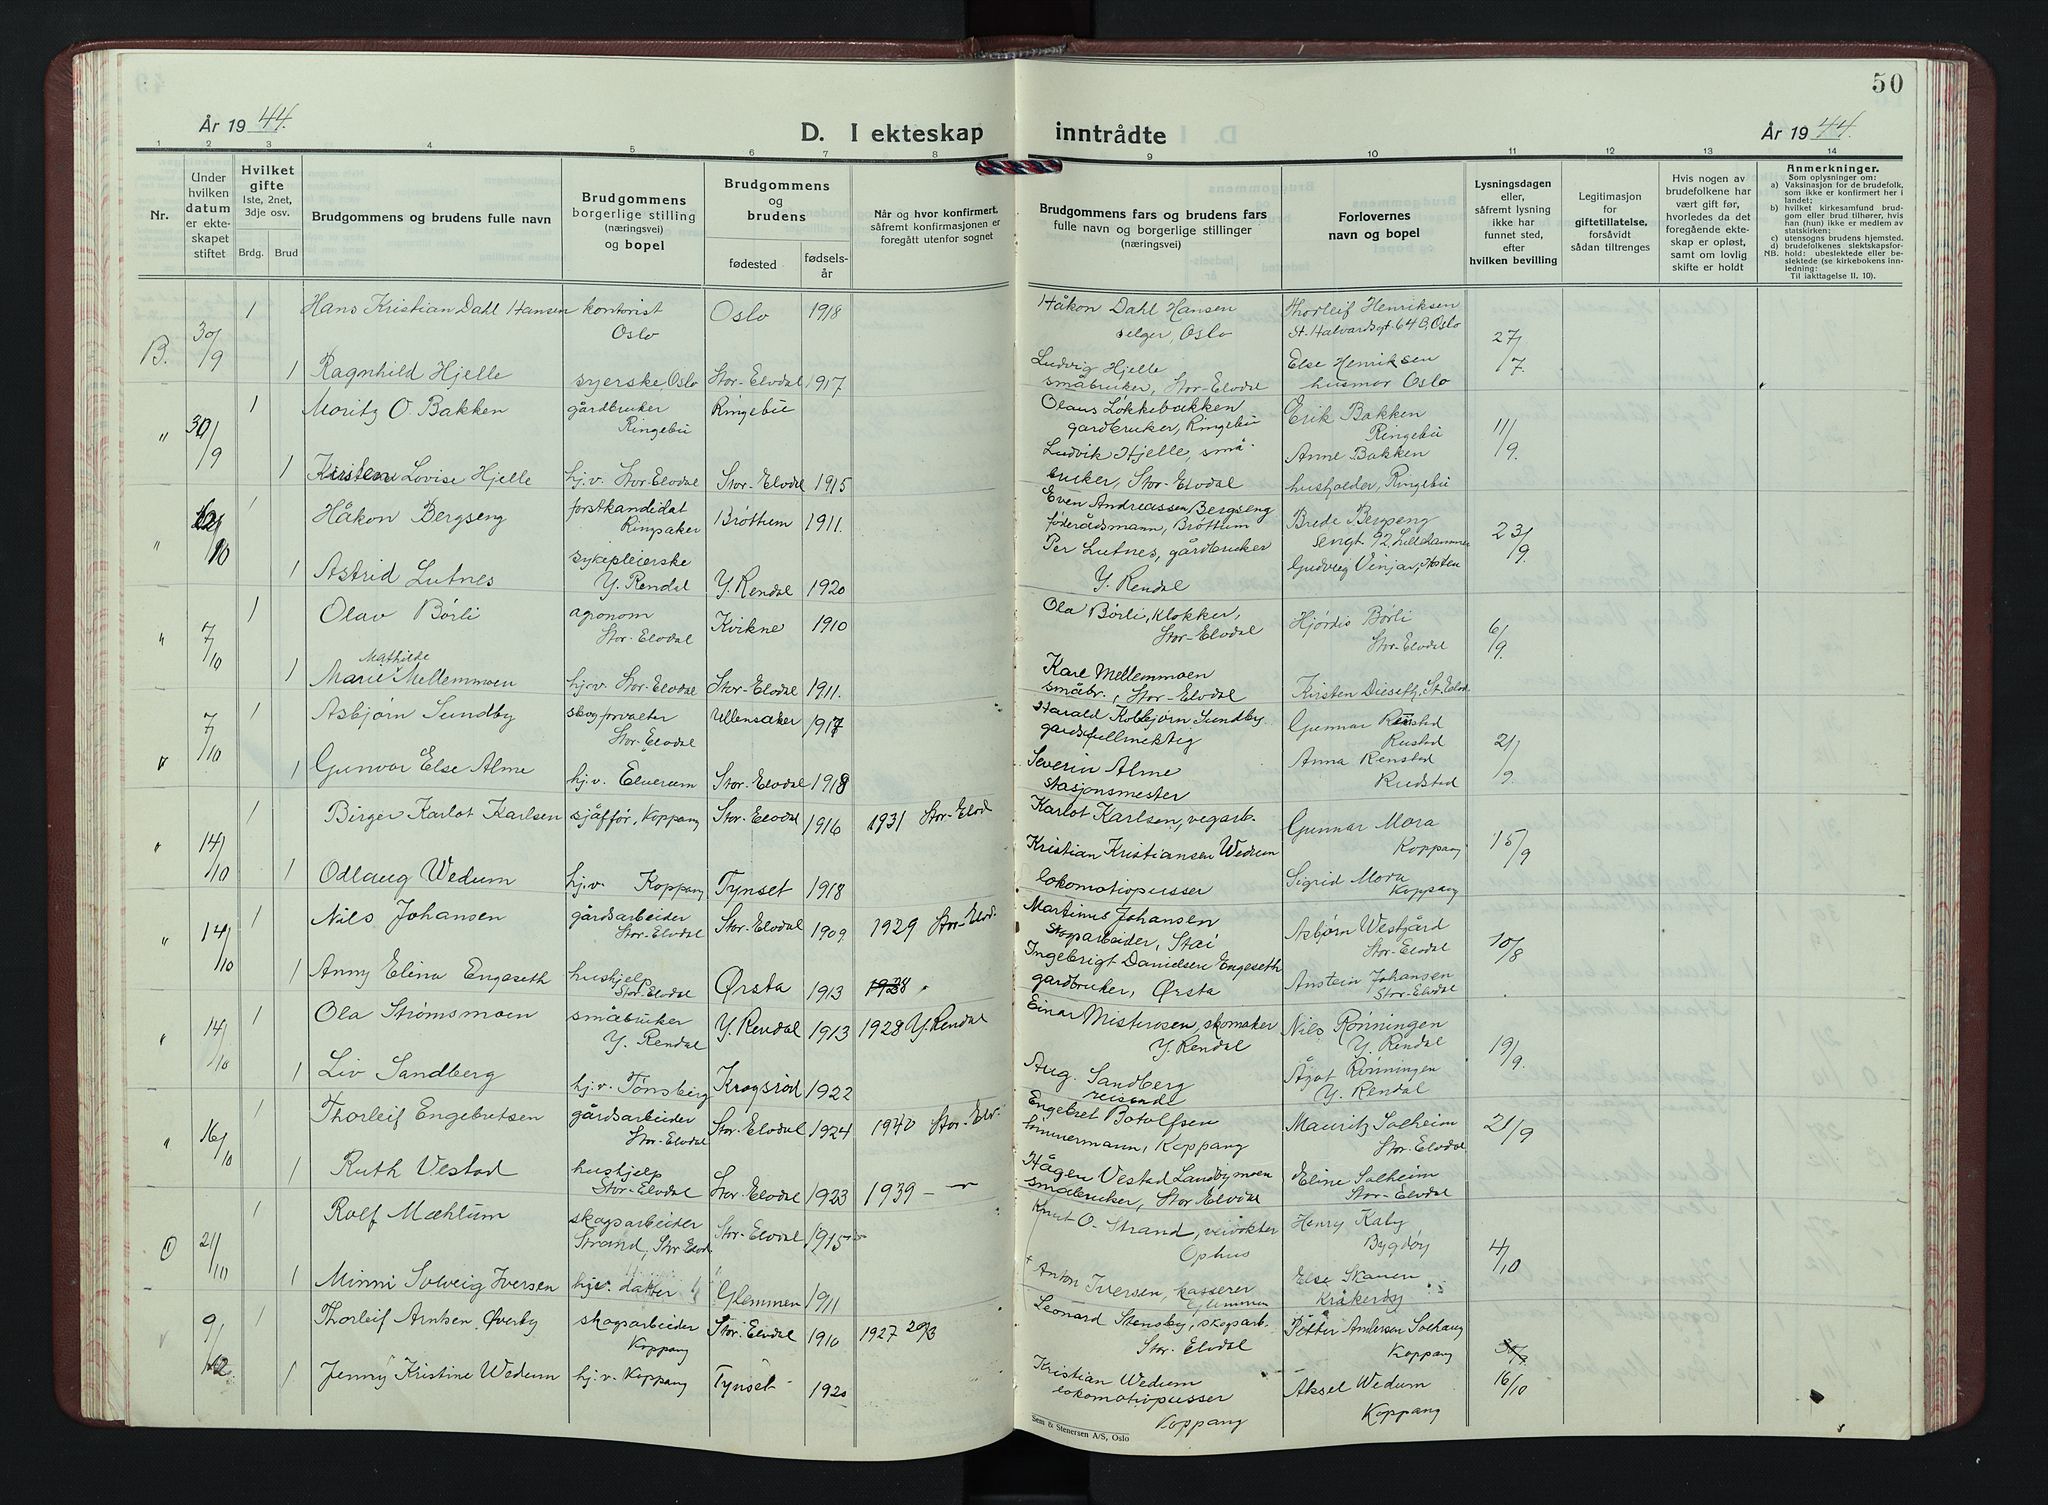 50
År 1944.
D. I ekteskap
inntrådte
År 1944.
1 2 3 4 5 6 7 8 9 10 11 12 13 14
Nr.
Under hvilken datum er ekteskapet stiftet
Hvilket gifte
1ste, 2net, 3dje osv.
Brdg. Brud
Brudgommens og brudens fulle navn
Brudgommens borgerlige stilling (næringsvei) og bopel
Brudgommens og brudens
fødested
fødselsår
Når og hvor konfirmert, såfremt konfirmasjonen er foregått utenfor sognet
Brudgommens fars og brudens fars fulle navn og borgerlige stillinger (næringsvei)
Forlovernes navn og bopel
Lysningsdagen eller, såfremt lysning ikke har funnet sted, efter hvilken bevilling
Legitimasjon for giftetillatelse, forsåvidt sådan tiltrenges
Hvis nogen av brudefolkene har vært gift før, hvorledes da det foregående ekteskap er opløst, samt om lovlig skifte er holdt
Anmerkninger.
Som oplysninger om:
a) Vaksinasjon for de brudefolk, som ikke er konfirmert her i landet;
b) hvilket kirkesamfund brudgom eller brud tilhører, hvis han (hun) ikke er medlem av statskirken;
c) utensogns brudens hjemsted.
d) brudefolkenes slektskapsforhold: ubeslektede eller beslektede (se kirkebokens innledning:
NB. Til iakttagelse II, 10).
B. 30/9 1 Hans Kristian Dahl Hansen kontorist Oslo Oslo 1918 Håkon Dahl Hansen selger, Oslo Thorleif Henriksen St. Halvardsgt. 64 B, Oslo 27/7
1 Ragnhild Hjelle syerske, Oslo Stor-Elvdal 1917 Ludvig Hjelle småbruker, Stor-Elvdal Else Henriksen husmor Oslo
" 30/9 1 Moritz O. Bakken gårdbruker Ringebu Ringebu Olaus Løkkebakken gardbruker, Ringebu Erik Bakken Ringebu 11/9
1 Kirsten Lovise Hjelle hj.v. Stor-Elvdal Stor-Elvdal 1915 Ludvik Hjelle, småbruker, Stor-Elvdal Anne Bakken husholder, Ringebu
" /10 1 Håkon Bergseng forstkandidat Ringsaker Brøttum 1911. Even Andreassen Bergseng føderådsmann, Brøttum Brede Bergseng 92, Lillehammer 23/9
1 Astrid Lutnes sykepleierske Y. Rendal Y. Rendal 1920 Per Lutnes, gårdbruker Y. Rendal Gudveig Venjar,
" 7/10 1 Olav Børli agronom Stor-Elvdal Kvikne 1910 Ola Børli, klokker, Stor-Elvdal Hjørdis Børli Stor-Elvdal 6/9
1 Marie Mathilde Mellemmoen hj.v. Stor-Elvdal Stor-Elvdal 1911. Karl Mellemmoen småbr., Stor-Elvdal Kirsten Dieseth, St. Elvd.
" 7/10 1 Asbjørn Sundby skogforvalter Stor-Elvdal Ullensaker 1917 Harald Kolbjørn Sundby gardsfullmektig Gunnar Renstad Rustad 21/9
1 Gunvor Else Alme hj.v. Elverum Stor-Elvdal 1918 Severin Alme stasjonsmester Anna Renstad Rudstad
" 14/10 1 Birger Karlot Karlsen sjåfør, Koppang Stor-Elvdal 1916 1931 Stor-Elvd Karlot Karlsen, vegarb. Gunnar Mora Koppang 15/9
1 Odlaug Wedum hj.v. Koppang Tynset 1918 Kristian Kristiansen Wedum lokomotivpusser Sigrid Mora Koppang
" 14/10 1 Nils Johansen gårdsarbeider Stor-Elvdal Stor-Elvdal 1909 1929 Stor-Elvd. Martinus Johansen skogarbeider, Stai Asbjørn Westgård Stor-Elvdal 10/8
1 Anny Elina Engeseth hushjelp Stor-Elvdal Ørsta 1913 1928 Ingebrigt Danielsen Engeseth gardbruker, Ørsta Anstein Johansen Stor-Elvdal
" 14/10 1 Ola Strømsmoen småbruker Y. Rendal Y. Rendal 1913 1928 Y. Rendal Einar Misterosen, skomaker Y. Rendal Nils Rønningen Y. Rendal 19/9
1 Liv Sandberg hj.v. Tønsberg Krogsrød 1922 Aug. Sandberg reisende Ågot Rønningen Y. Rendal
" 16/10 1 Thorleif Engebretsen gårdsarbeider Stor-Elvdal Stor-Elvdal 1924 1940 Stor-Elv. Engebret Botolfsen tømmermann, Koppang Mauritz Solheim Stor-Elvdal 21/9
1 Ruth Vestad hushjelp Stor-Elvdal Stor-Elvdal 1923 1939 — " — Hågen Vestad Landbymoen småbruker, Stor Elvdal Eline Solheim Stor-Elvdal
21/10 1 Rolf Mæhlum skogsarbeider Strand, Stor Elvd. Stor-Elvdal 1915 Knut O. Strand, veivokter Ophus Henry Kaby Bygdøy 4/10
1 Minni Solveig Iversen hjv. datter Glemmen 1911 Anton Iversen, kasserer Glemmen Else Skauen Kråkerøy
" 9/12 1 Thorleif Arntsen Øverby skogsarbeider Koppang Stor-Elvdal 1910 1927 20/3 Leonard Stensby, skogsarb. Stor-Elvdal Petter Andersen Solhaug Koppang
1 Jenny Kristine Wedum hj.v. Koppang Tynset 1920 Kristian Wedum lokomotivpusser Koppang Aksel Wedum Koppang 16/10
Sem & Stenersen A/S, Oslo